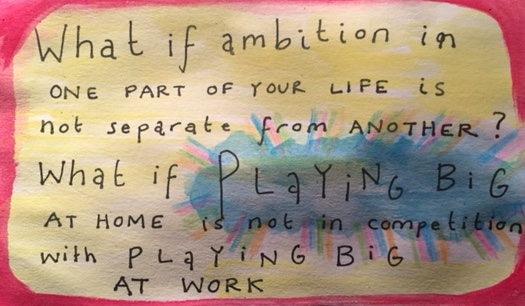 What if ambition in
ONE PART OF YOUR LIFE is
not separate from ANOTHER?
What if PLaYiNG BiG
AT HOME is not in competition
with PLaYiNG BiG
AT WORK